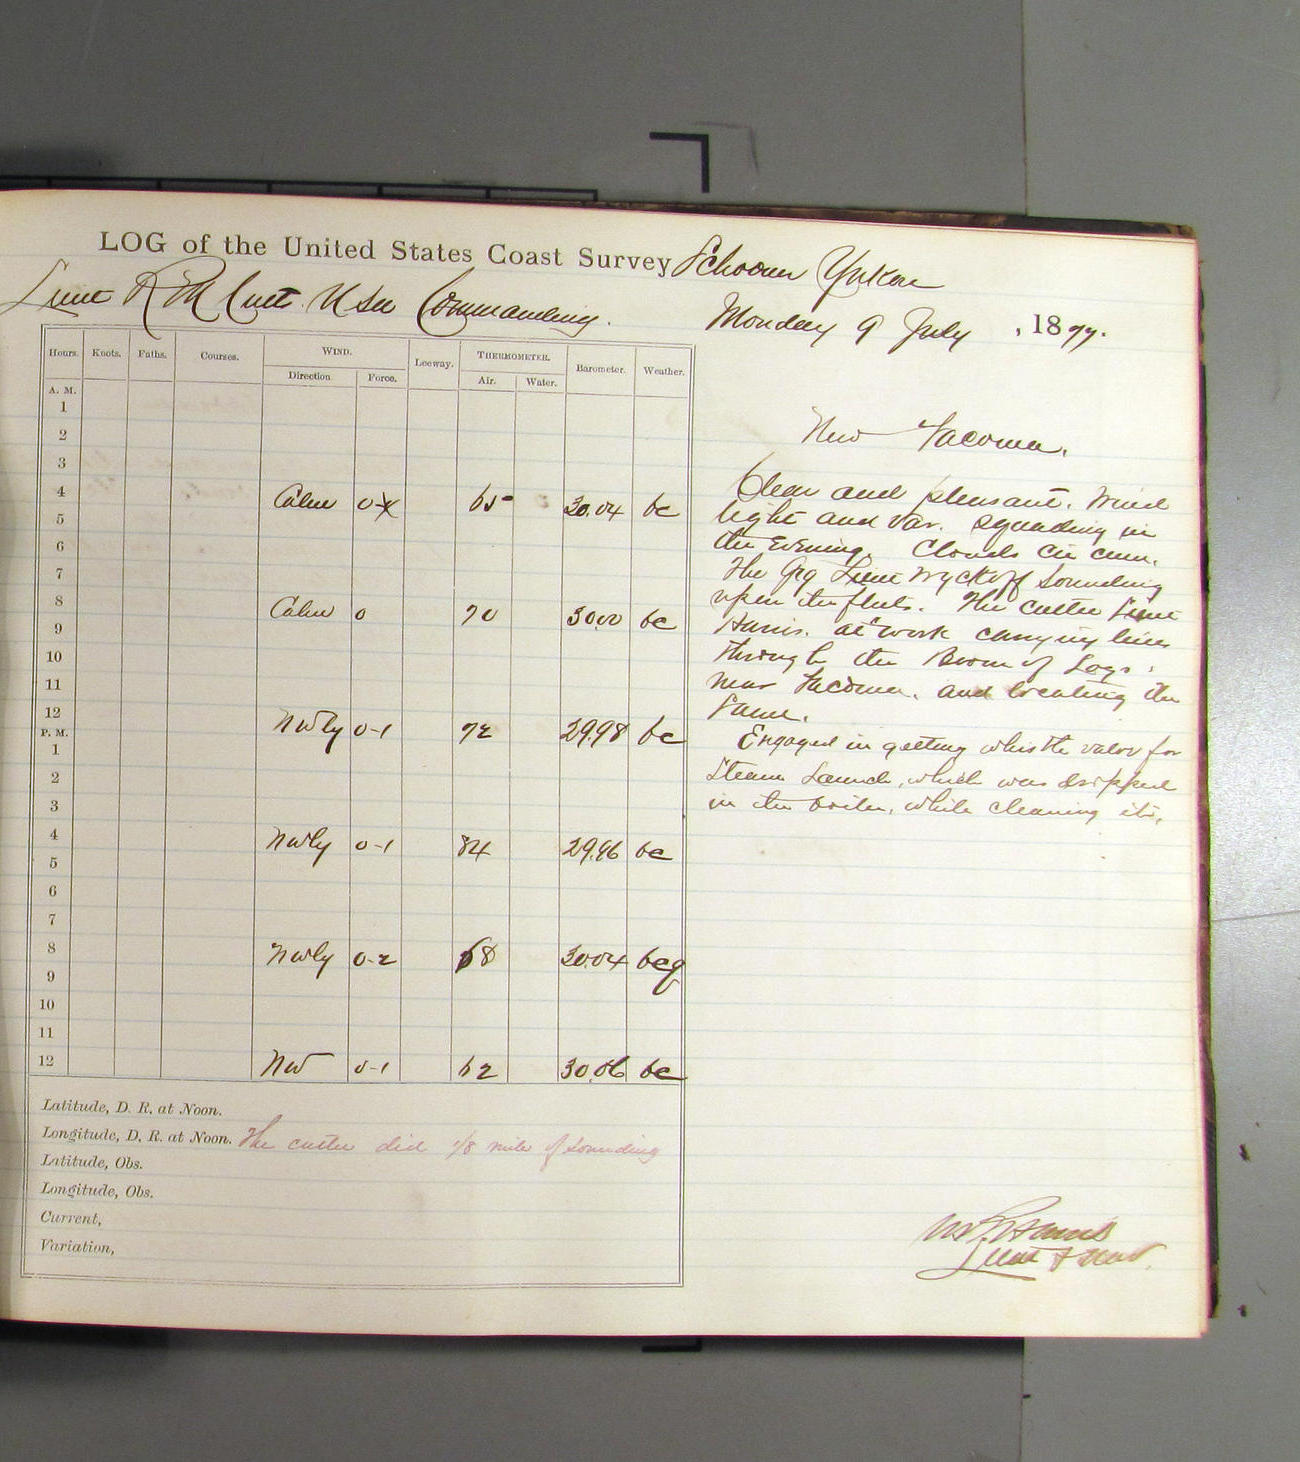 LOG of the United States Coast Survey Schooner Yukon
Lieut Commanding.
Monday 9 July , 1877.
Hours. Knots. Faths. Courses. WIND. Leeway. THERMOMETER. Barometer. Weather.
Direction Force. Air. Water.
A. M.
1
2
3
4 Calm 0 65 30.04 bc
5
6
7
8 Calm 0 70 30.00 bc
9
10
11
12 Nwly 0-1 72 29.98 bc
P. M.
1
2
3
4 Nwly 0-1 84 29.96 bc
5
6
7
8 Nwly 0-2 68 30.04 bcq
9
10
11
12 NW 0-1 62 30.06 bc
Latitude, D. R. at Noon.
Longitude, D. R. at Noon. The cutter did 1/8 mile of sounding
Latitude, Obs.
Longitude, Obs.
Current,
Variation,
New Tacoma.
Clear and pleasant. Wind
light and var. squading in
the Evening. Clouds cir cum.
The Gig Lieut Wyckoff Sounding
upon the flats. The cutter Lieut
Harris. at work carrying lines
through the Boom of Logs.
near Tacoma. and locating the
Same.
Engaged in getting whistle valve for
Steam Launch, which was dropped
in the boiler, while cleaning it.
Harris
Lieut &